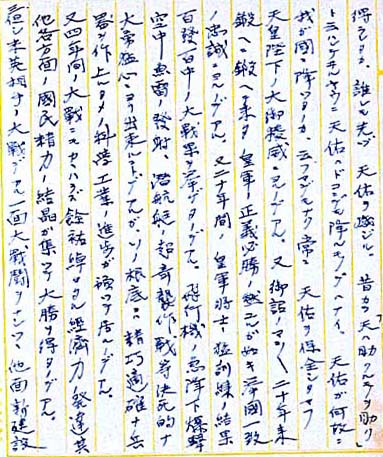 得ルタガ、誰レモ先ヅ天佑ヲ感ジル。昔カラ「天ハ助クルヲ助ク」
トユハレテヰルヤウニ天佑ハドコニデモ降ルモノデハナイ。天佑ガ何故ニ
我ガ國ニ降ツタカ、云フマデモナク常ニ天佑ヲ保全シタマフ
天皇陛下ノ大御稜威ニヨルデアル。又御詔ノマニマニ二十年来
鍛ヘニ鍛ヘ来タ皇軍ノ正義必勝ノ燃エルガ如キ挙國一致
ノ忠誠ニヨルノデアル。又二十年間ノ皇軍将士ノ猛訓練ノ結果
百發百中ノ大戦果ヲ挙ゲタノデアル。飛行機ノ急降下爆撃
空中魚雷ノ發射、潜航艇ノ超奇襲作戦等決死的ナ
大勇猛心ニヨリ出来ルコトデアルガソノ根底ニハ精巧適確ナ兵
器ヲ作リ上ゲタ科学工業ノ進歩ガ横ツテ居ルノデアル。
又四年間ノ大戦ニモカカハラズ餘裕綽々タル經濟力ノ發達其
他各方面ノ國民精力ノ結晶ガ集マツテ大勝ヲ得タノデアル。
但シ米英相手ノ大戦デアル。一面大戦闘ヲナシツツ他面新建設